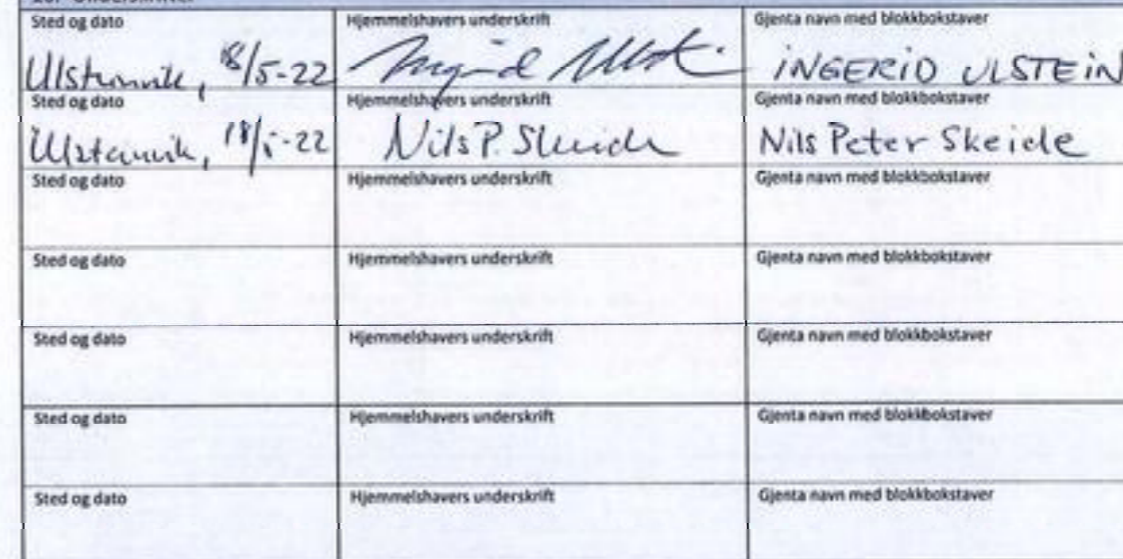 Sted og dato Hjemmelshavers underskrift Gjenta navn med blokkbokstaver
Ulsteinvik, 18/5-22 Ingerid Ulstein INGERID ULSTEIN
Sted og dato Hjemmelshavers underskrift Gjenta navn med blokkbokstaver
Ulsteinvik, 18/5-22 Nils P. Skeide Nils Peter Skeide
Sted og dato Hjemmelshavers underskrift Gjenta navn med blokkbokstaver
Sted og dato Hjemmelshavers underskrift Gjenta navn med blokkbokstaver
Sted og dato Hjemmelshavers underskrift Gjenta navn med blokkbokstaver
Sted og dato Hjemmelshavers underskrift Gjenta navn med blokkbokstaver
Sted og dato Hjemmelshavers underskrift Gjenta navn med blokkbokstaver